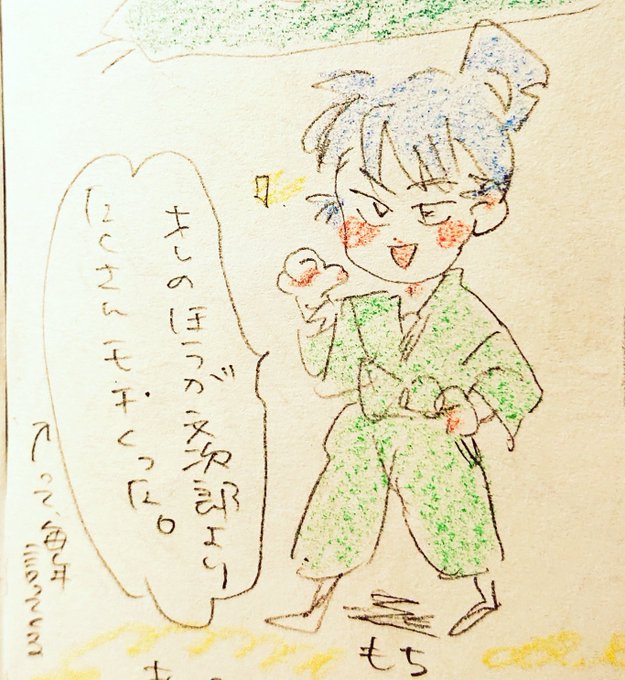 オレのほうが文次郎より
たくさんモチくった。
もち